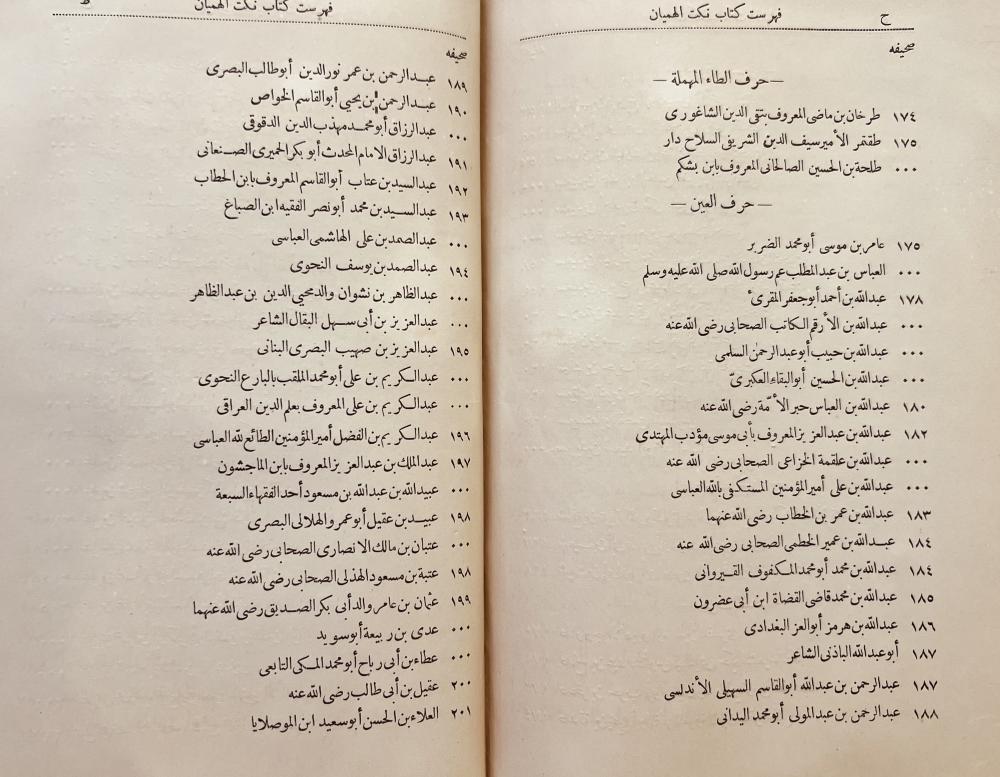 ح فهرست كتاب نكت الهميان
صحيفه
— حرف الطاء المهملة —
١٧٤ طرخان بن ماضى المعروف بتقى الدين الشاغورى
١٧٥ طقتمر الأمير سيف الدين الشريفى السلاح دار
٠٠٠ طلحة بن الحسين الصالحانى المعروف بابن بشكم
— حرف العين —
١٧٥ عامر بن موسى أبو محمد الضرير
٠٠٠ العباس بن عبد المطلب عم رسول الله صلى الله عليه وسلم
١٧٨ عبد الله بن أحمد أبو جعفر المقرئ
٠٠٠ عبد الله بن الأرقم الكاتب الصحابى رضى الله عنه
٠٠٠ عبد الله بن حبيب أبو عبد الرحمن السلمى
٠٠٠ عبد الله بن الحسين أبو البقاء العكبرىّ
١٨٠ عبد الله بن العباس حبر الأمّة رضى الله عنه
١٨٢ عبد الله بن عبد العزيز المعروف بأبى موسى مؤدب المهتدى
٠٠٠ عبد الله بن علقمة الخزاعى الصحابى رضى الله عنه
٠٠٠ عبد الله بن على أمير المؤمنين المستكفى بالله العباسى
١٨٣ عبد الله بن عمر بن الخطاب رضى الله عنهما
١٨٤ عبد الله بن عمير الخطمى الصحابى رضى الله عنه
١٨٤ عبد الله بن محمد أبو محمد المكفوف القيروانى
١٨٥ عبد الله بن محمد قاضى القضاة ابن أبى عضرون
١٨٦ عبد الله بن هرمز أبو العز البغدادى
١٨٧ أبو عبد الله الباذنى الشاعر
١٨٧ عبد الرحمن بن عبد الله أبو القاسم السهيلى الأندلسى
١٨٨ عبد الرحمن بن عبد المولى أبو محمد اليدانى
فهرست كتاب نكت الهميان ط
صحيفه
١٨٩ عبد الرحمن بن عمر نور الدين أبو طالب البصرى
١٩٠ عبد الرحمن بن يحيى أبو القاسم الخواص
٠٠٠ عبد الرزاق أبو محمد مهذب الدين الدقوقى
١٩١ عبد الرزاق الامام المحدث أبو بكر الحميرى الصنعانى
١٩٢ عبد السيد بن عتاب أبو القاسم المعروف بابن الحطاب
١٩٣ عبد السيد بن محمد أبو نصر الفقيه ابن الصباغ
٠٠٠ عبد الصمد بن على الهاشمى العباسى
١٩٤ عبد الصمد بن يوسف النحوى
٠٠٠ عبد الظاهر بن نشوان والد محيى الدين بن عبد الظاهر
٠٠٠ عبد العزيز بن أبى سهل البقال الشاعر
١٩٥ عبد العزيز بن صهيب البصرى البنانى
٠٠٠ عبد الكريم بن على أبو محمد الملقب بالبارع النحوى
٠٠٠ عبد الكريم بن على المعروف بعلم الدين العراقى
١٩٦ عبد الكريم بن الفضل أمير المؤمنين الطائع لله العباسى
١٩٧ عبد الملك بن عبد العزيز المعروف بابن الماجشون
٠٠٠ عبيد الله بن عبد الله بن مسعود أحد الفقهاء السبعة
١٩٨ عبيد بن عقيل أبو عمرو الهلالى البصرى
٠٠٠ عتبان بن مالك الانصارى الصحابى رضى الله عنه
١٩٨ عتبة بن مسعود الهذلى الصحابى رضى الله عنه
١٩٩ عثمان بن عامر والد أبى بكر الصديق رضى الله عنهما
٠٠٠ عدى بن ربيعة أبو سويد
٠٠٠ عطاء بن أبى رباح أبو محمد المكى التابعى
٢٠٠ عقيل بن أبى طالب رضى الله عنه
٢٠١ العلاء بن الحسن أبو سعيد ابن الموصلايا